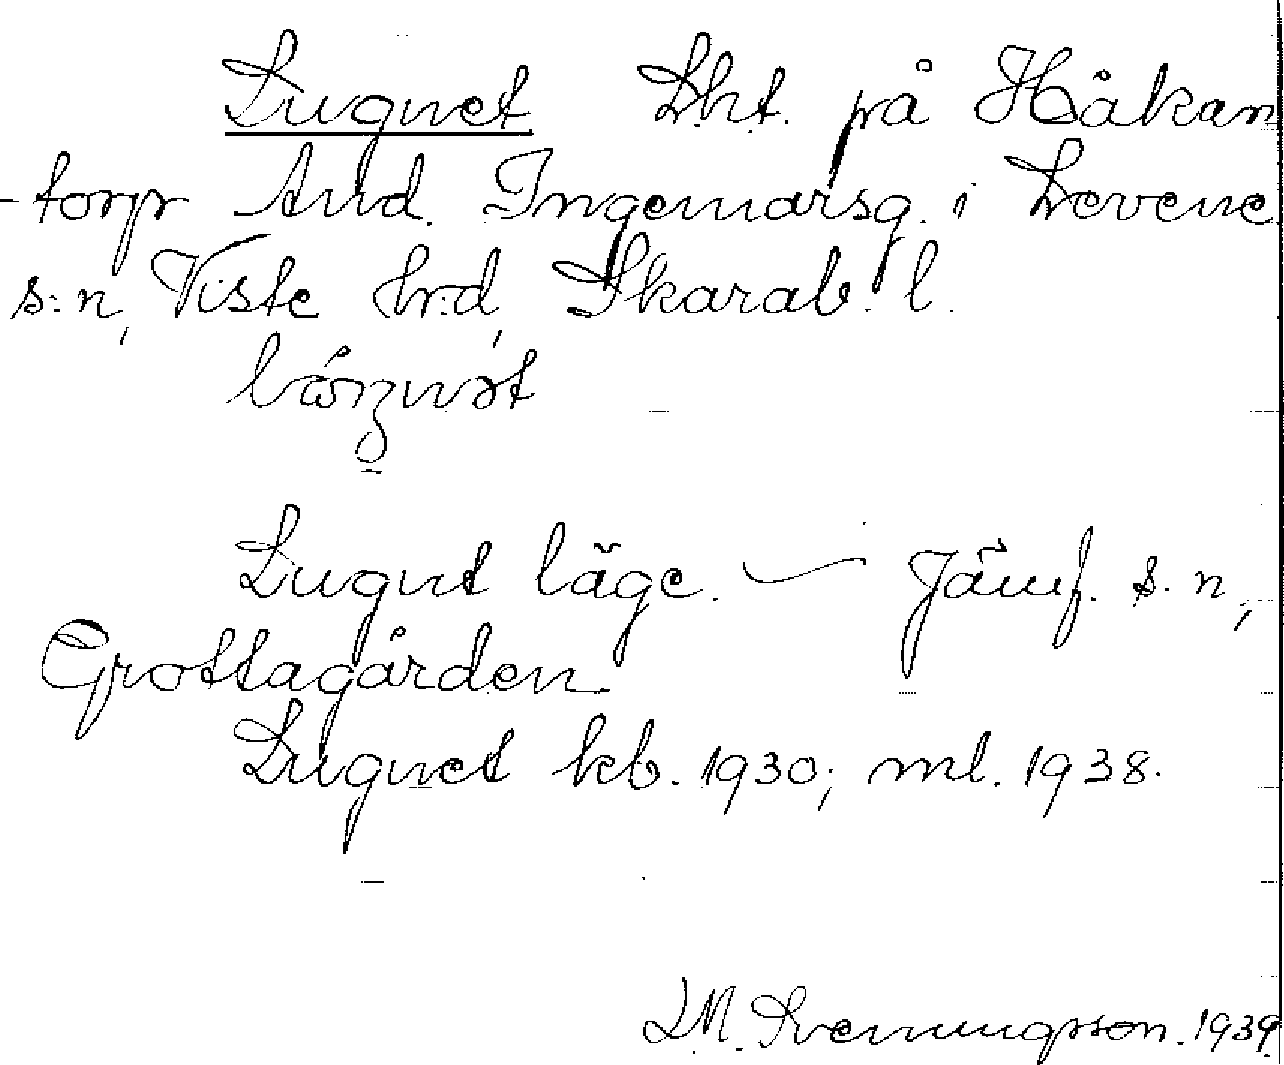 Lugnet Lht. på Håkan
-torp And. Ingemarsg. i Levene
s:n, Viste hrd, Skarab. l.
Lugnt läge. — Jämf. s. n,
Grottagården.
Lugnet kb. 1930; ml. 1938.
L M. Svenningsson. 1939